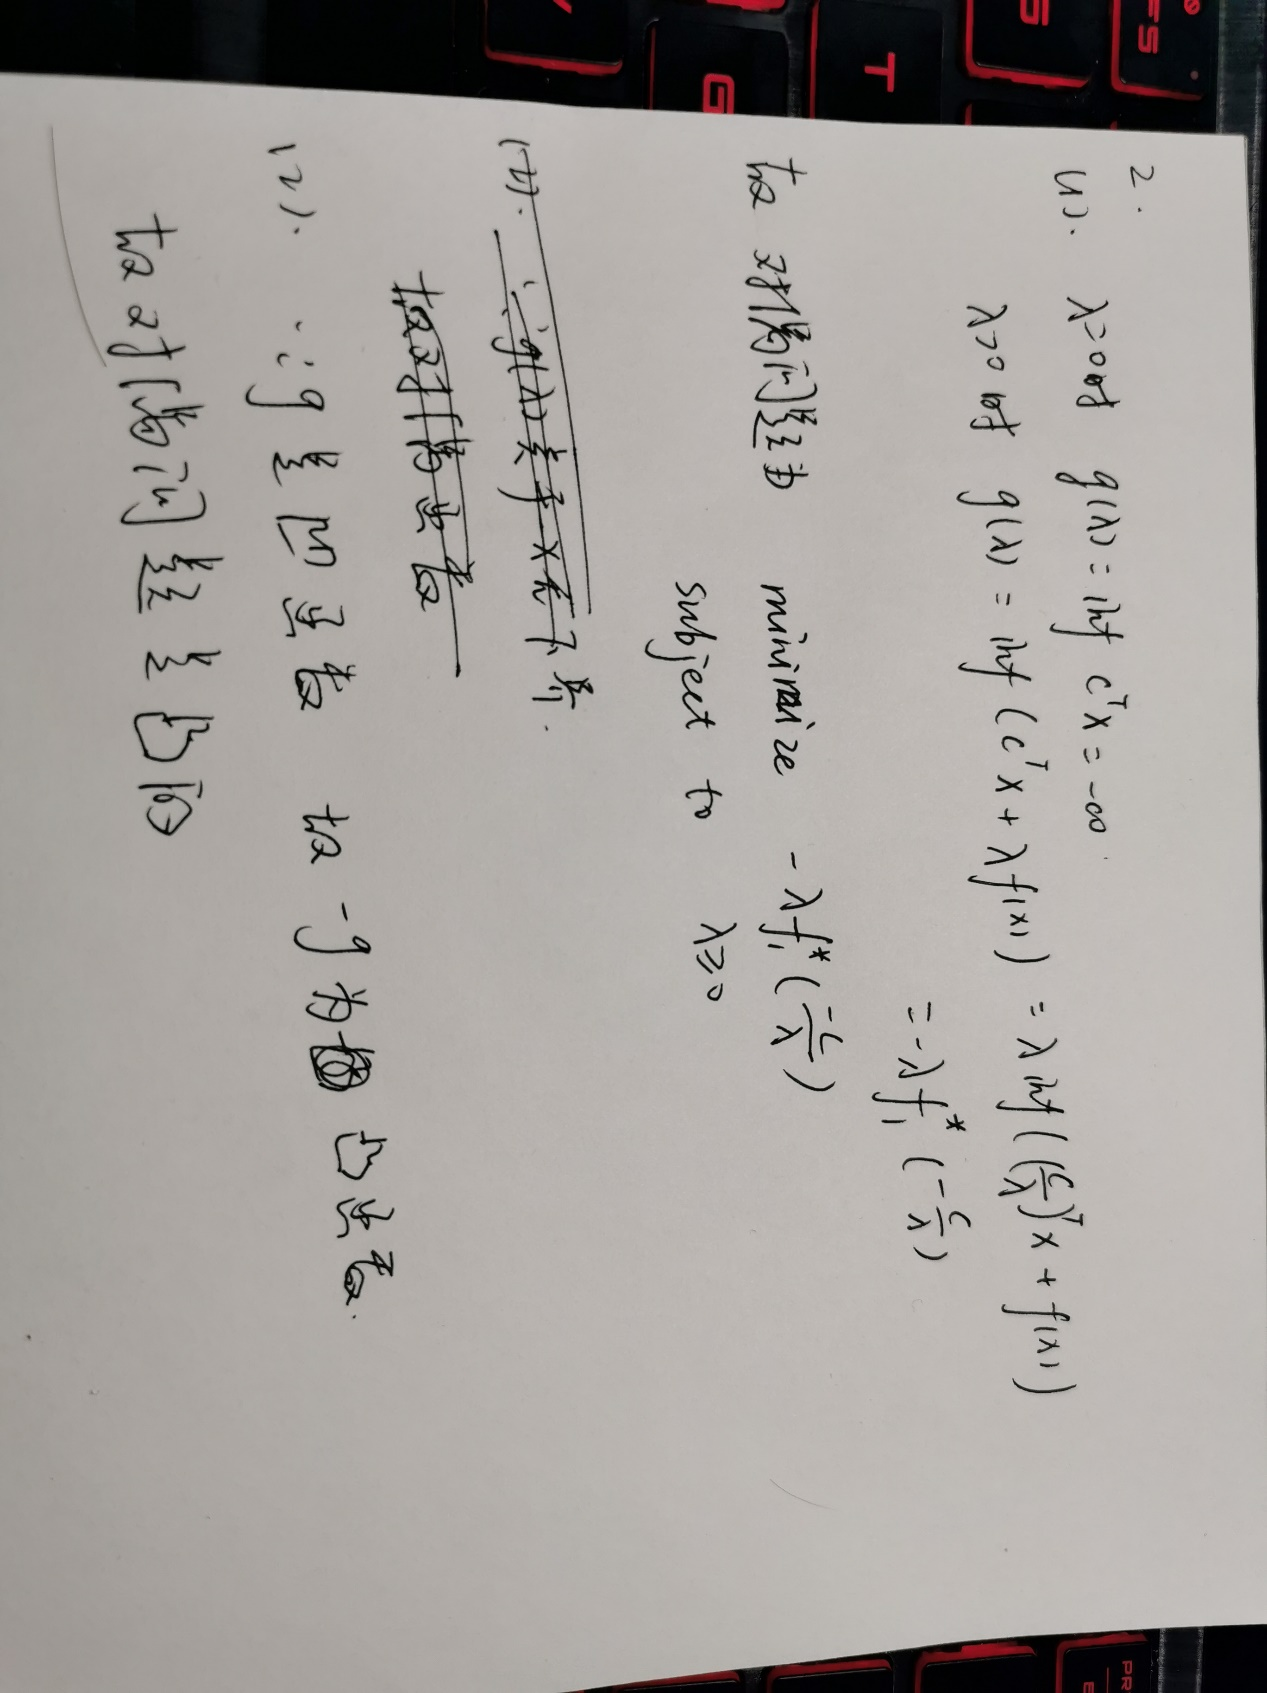 2.
(1). λ=0时 g(λ) = inf cᵀx = -∞.
λ>0时 g(λ) = inf (cᵀx + λf(x)) = λ inf ((c/λ)ᵀx + f(x))
= -λf₁*(-c/λ)
故对偶问题为 minimize -λf₁*(-c/λ)
subject to λ≥0
∵g(λ)关于x有下界.
故对偶函数
(2). ∵g是凹函数 故-g为凸函数.
故对偶问题是凸的
F5
T
G
PR